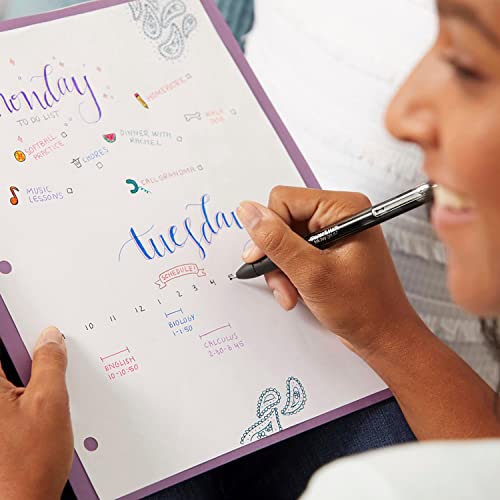 monday
TO DO LIST
HOMEWORK
SOFTBALL
PRACTICE
DINNER WITH
RACHEL
WALK
DOG
CHORES
CALL GRANDMA
MUSIC
LESSONS
tuesday
SCHEDULE!
10 11 12 1 2 3 4 5
BIOLOGY
1-1:50
ENGLISH
10-10:50
CALCULUS
2:30-3:45